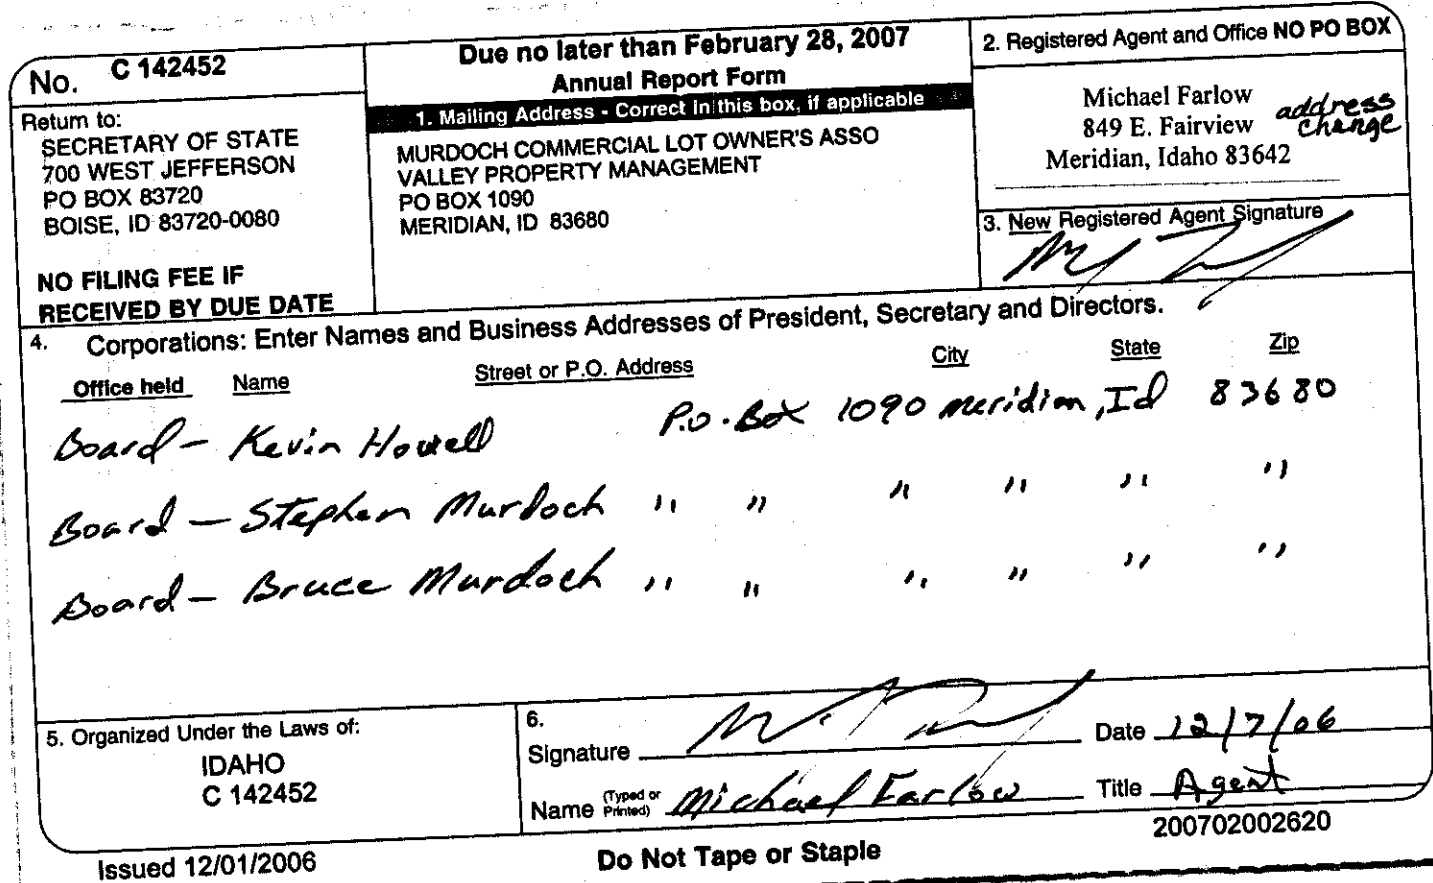 No. C 142452
Return to:
SECRETARY OF STATE
700 WEST JEFFERSON
PO BOX 83720
BOISE, ID 83720-0080
NO FILING FEE IF
RECEIVED BY DUE DATE
Due no later than February 28, 2007
Annual Report Form
1. Mailing Address - Correct in this box, if applicable
MURDOCH COMMERCIAL LOT OWNER'S ASSO
VALLEY PROPERTY MANAGEMENT
PO BOX 1090
MERIDIAN, ID 83680
2. Registered Agent and Office NO PO BOX
Michael Farlow
849 E. Fairview
Meridian, Idaho 83642
address
change
3. New Registered Agent Signature
4. Corporations: Enter Names and Business Addresses of President, Secretary and Directors.
Office held Name Street or P.O. Address City State Zip
Board - Kevin Howell P.O. Box 1090 Meridian, Id 83680
Board - Stephen Murdoch " " " " " "
Board - Bruce Murdoch " " " " " "
5. Organized Under the Laws of:
IDAHO
C 142452
6.
Signature Date 12/7/06
Name (Typed or Printed) Michael Farlow Title Agent
200702002620
Issued 12/01/2006
Do Not Tape or Staple